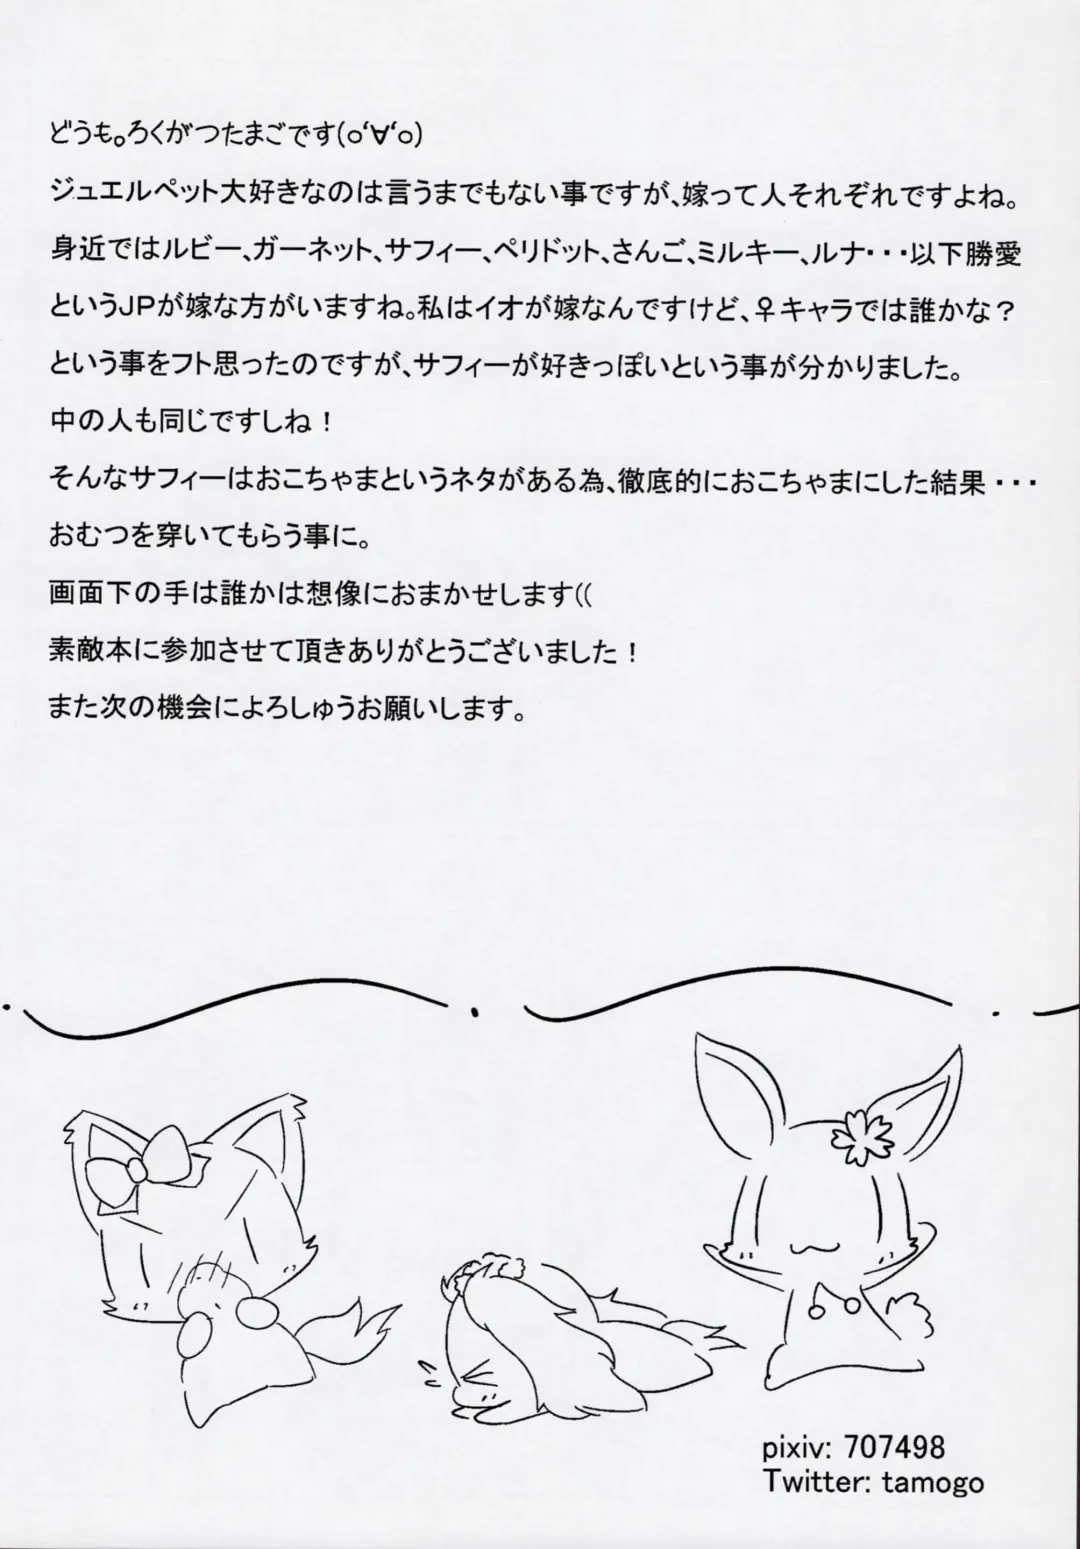 どうも。ろくがつたまごです(o'∀'o)
ジュエルペット大好きなのは言うまでもない事ですが、嫁って人それぞれですよね。
身近ではルビー、ガーネット、サフィー、ペリドット、さんご、ミルキー、ルナ・・・以下勝愛
というJPが嫁な方がいますね。私はイオが嫁なんですけど、♀キャラでは誰かな？
という事をフト思ったのですが、サフィーが好きっぽいという事が分かりました。
中の人も同じですしね！
そんなサフィーはおこちゃまというネタがある為、徹底的におこちゃまにした結果・・・
おむつを穿いてもらう事に。
画面下の手は誰かは想像におまかせします((
素敵本に参加させて頂きありがとうございました！
また次の機会によろしゅうお願いします。
pixiv: 707498
Twitter: tamogo